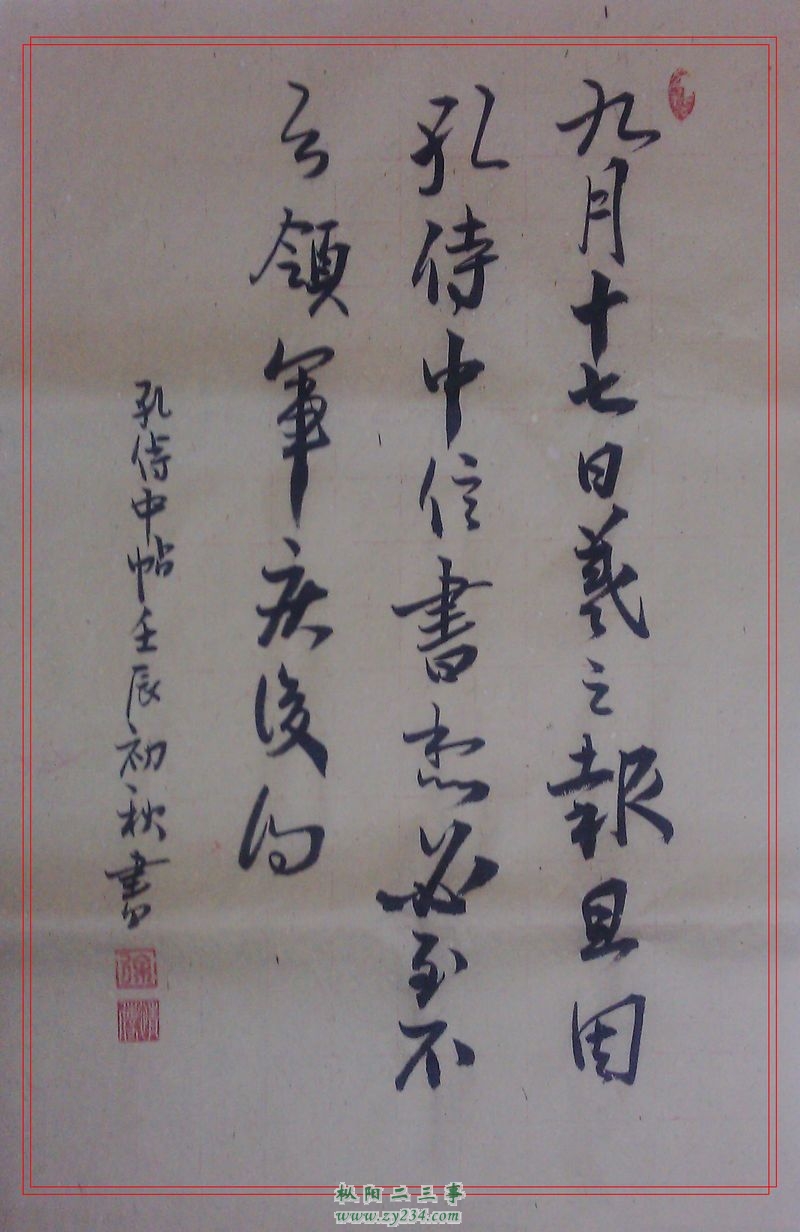 九月十七日羲之報且因
孔侍中信書想必至不
知領軍疾後問
孔侍中帖壬辰初秋書
枞阳二三事
www.zy234.com